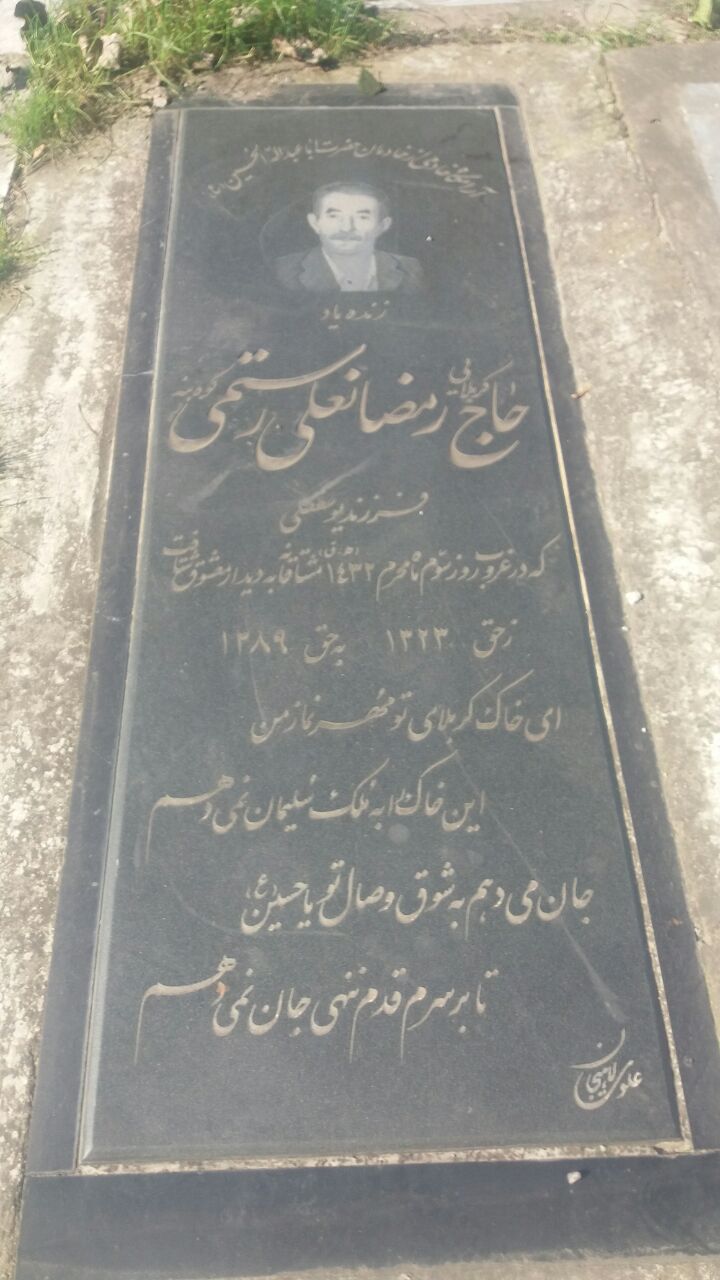 آرامگاه خادمی از خادمان حضرت اباعبدالله الحسین (ع)
زنده یاد
حاج کربلایی رمضانعلی رستمی گودبنه
فرزند یوسفعلی
که در غروب روز سوّم ماه محرم ۱۴۳۲ (ه.ق) مشتاقانه به دیدار معشوق شتافت
زحق ۱۳۲۳ به حق ۱۳۸۹
ای خاک کربلای تو مُهر نماز من
این خاک را به مُلک سلیمان نمی دهم
جان می دهم به شوق وصال تو یا حسین (ع)
تا بر سرم قدم ننهی جان نمی دهم
علوی لاهیجان